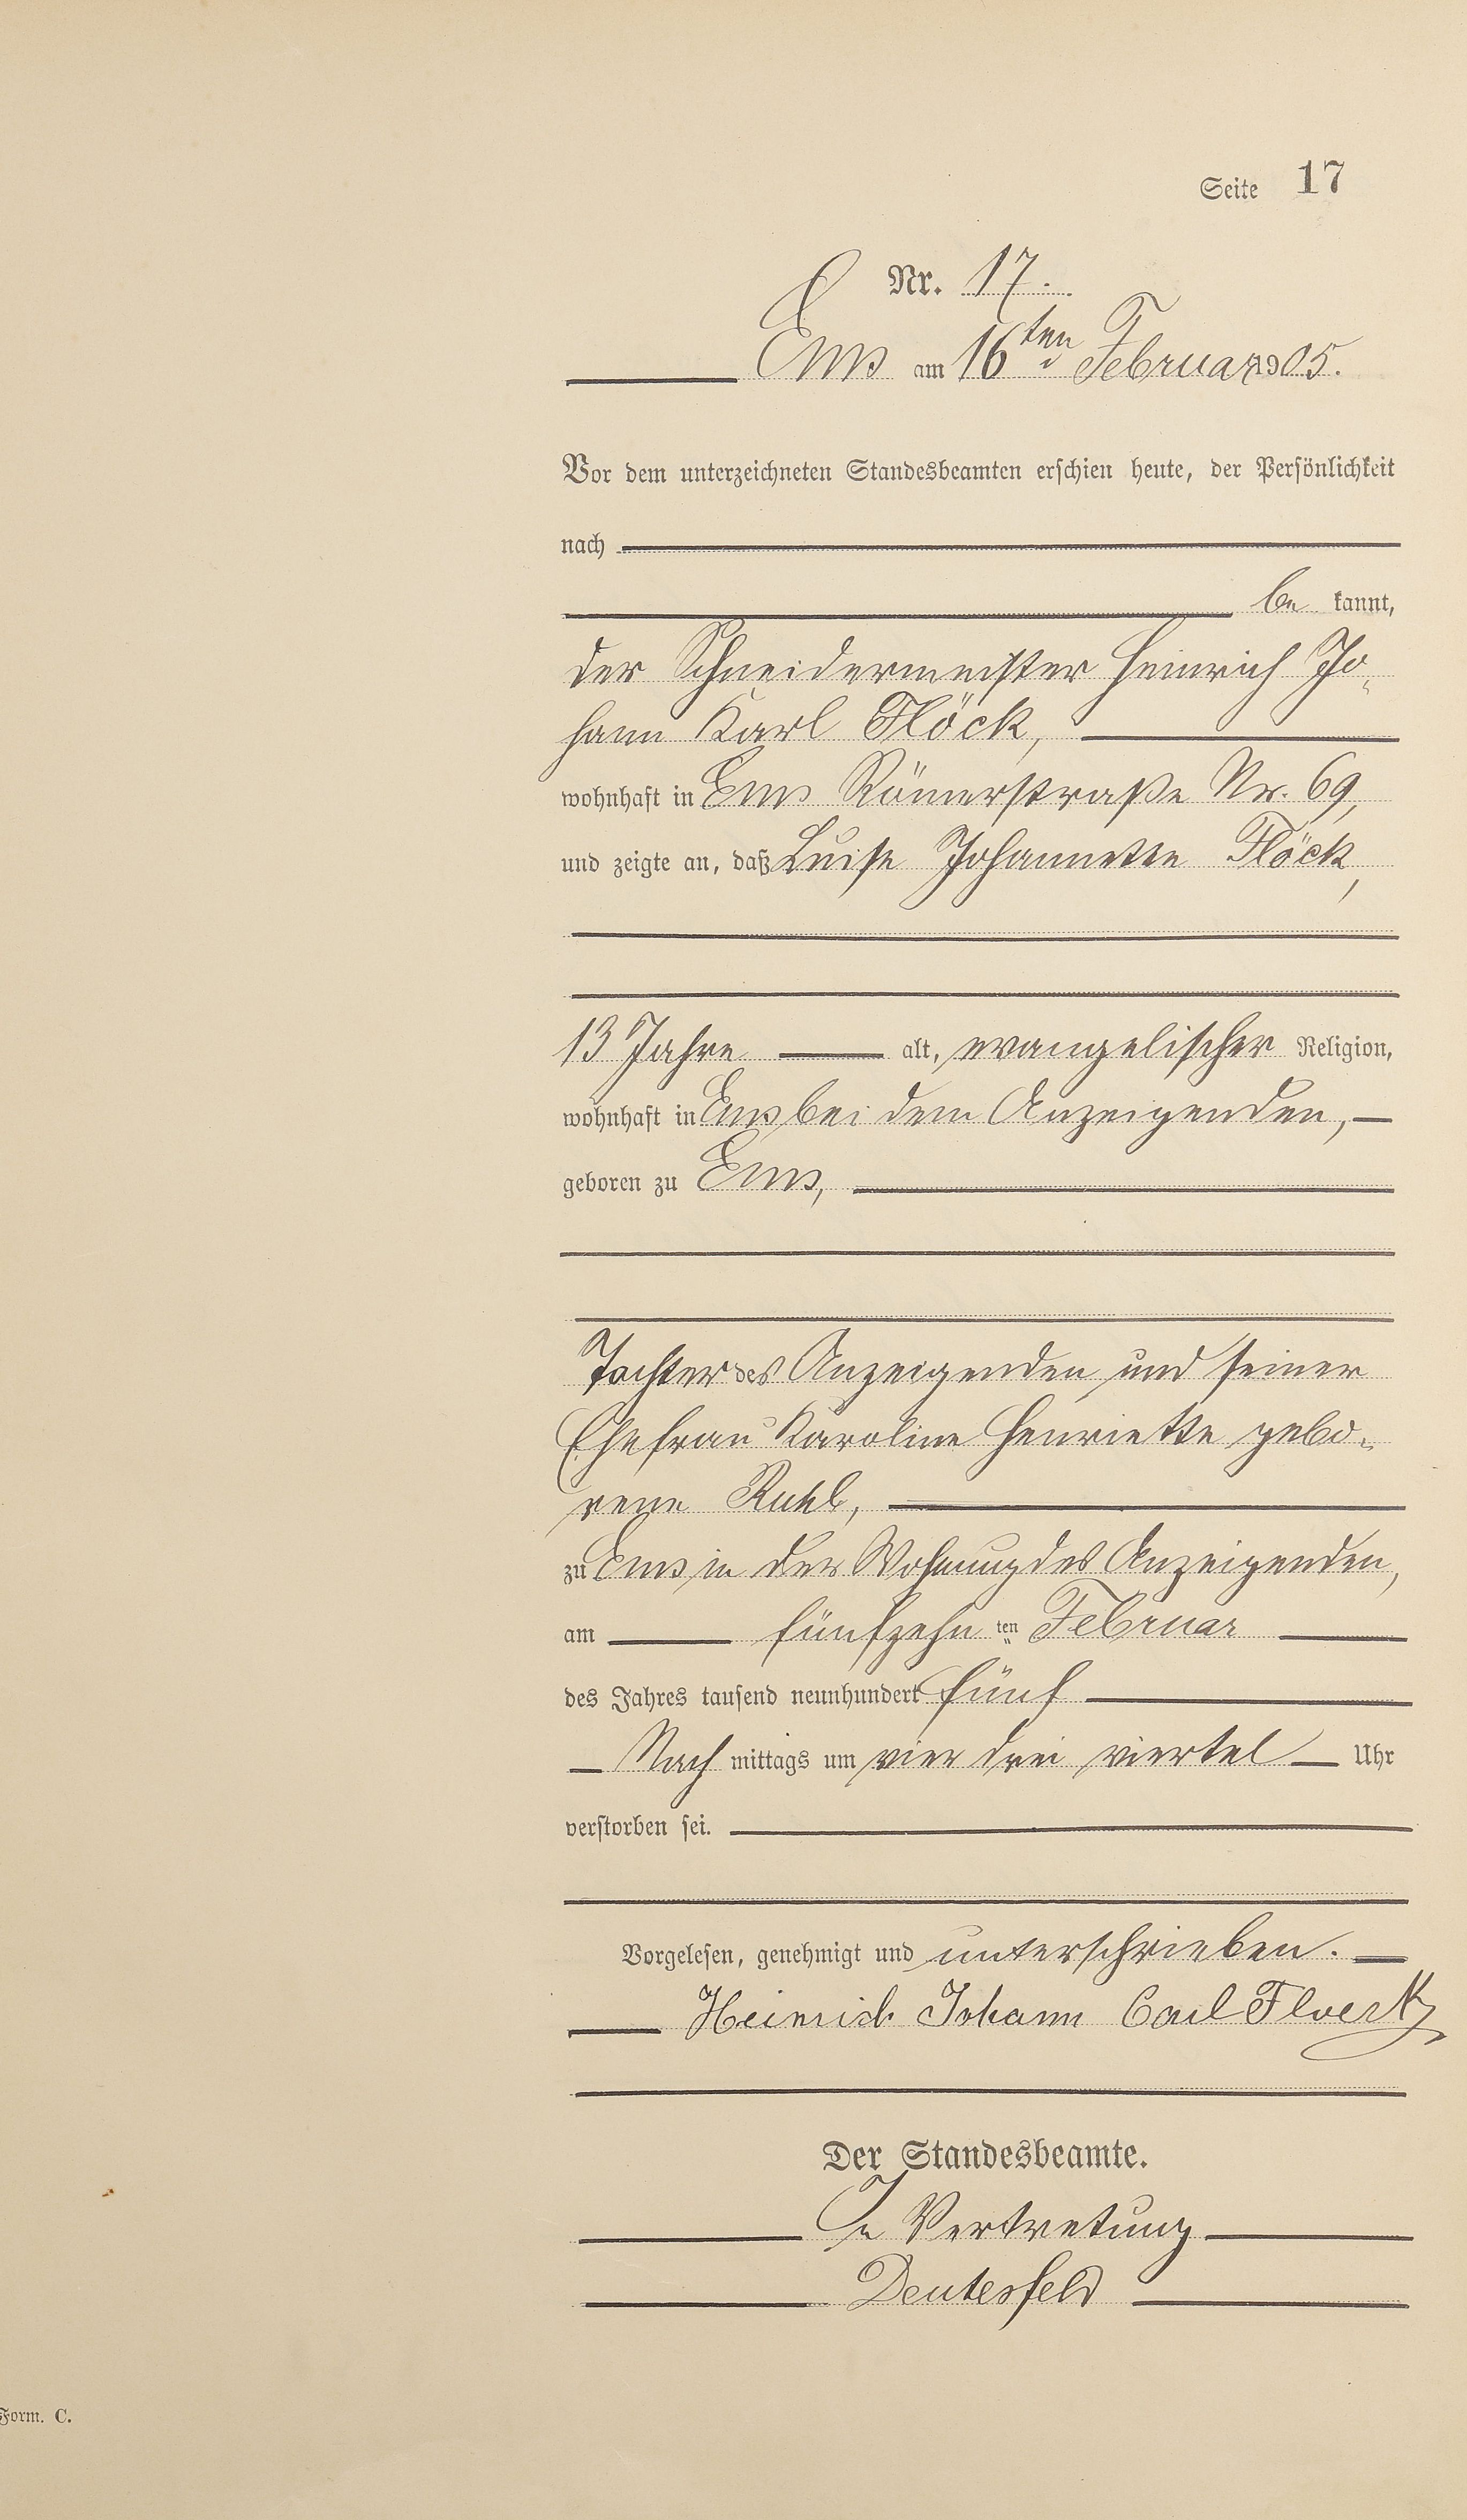 Seite 17
Nr. 17.
Ems am 16ten Februar 1905.
Vor dem unterzeichneten Standesbeamten erschien heute, der Persönlichkeit
nach
be kannt,
der Schneidermeister Heinrich Jo-
hann Karl Flöck,
wohnhaft in Ems Römerstraße Nr. 69,
und zeigte an, daß Luise Johannette Flöck,
13 Jahre alt, evangelischer Religion,
wohnhaft in Ems bei dem Anzeigenden,
geboren zu Ems,
Tochter des Anzeigenden und seiner
Ehefrau Karoline Henriette gebo-
rene Ruhl,
zu Ems in der Wohnung des Anzeigenden,
am fünfzehn ten Februar
des Jahres tausend neunhundert fünf
Nach mittags um vier drei viertel Uhr
verstorben sei.
Vorgelesen, genehmigt und unterschrieben.
Heinrich Johann Carl Floeck
Der Standesbeamte.
In Vertretung
Deutesfeld
Form. C.